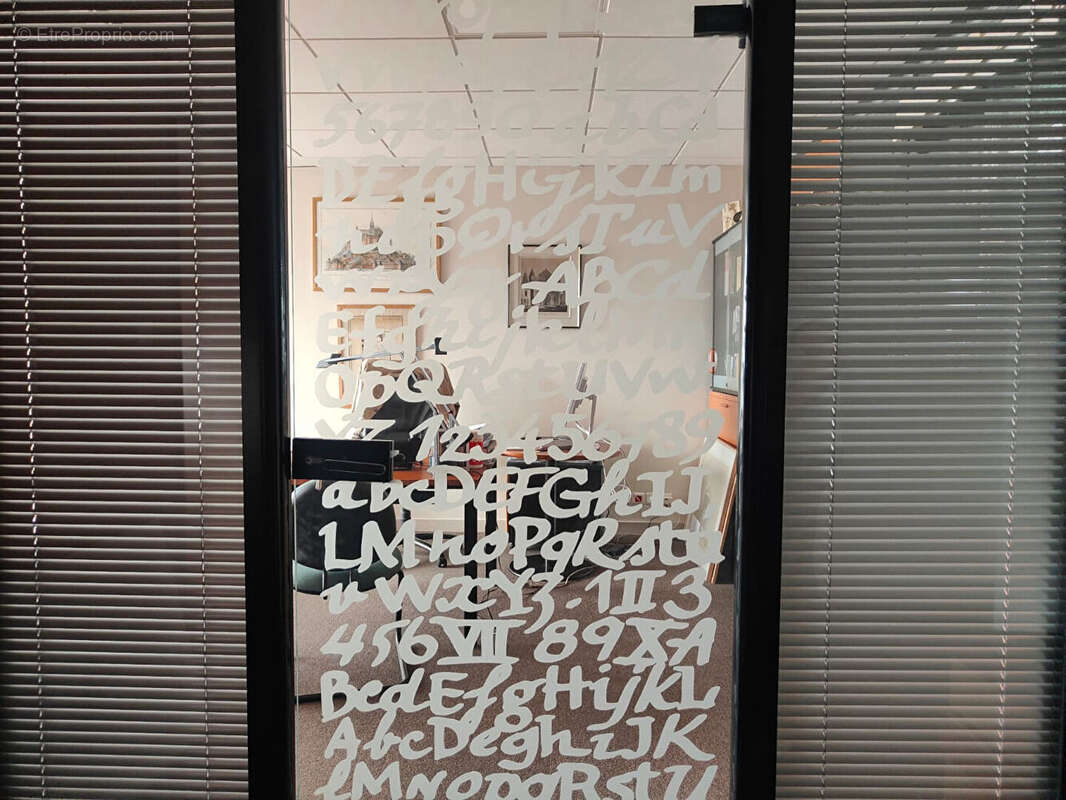 © EtreProprio.com
567890abCd
DEfgHijKLm
nopQrsTuV
wxyz-ABCd
Efghijklmn
OpQRstUVw
YZ.123456789
abcDEFGhIJ
LMnoPqRstu
vWxYz.1II3
456VII89XA
BcdEfgHijkL
AbcDeghiJK
lMNopqRstU